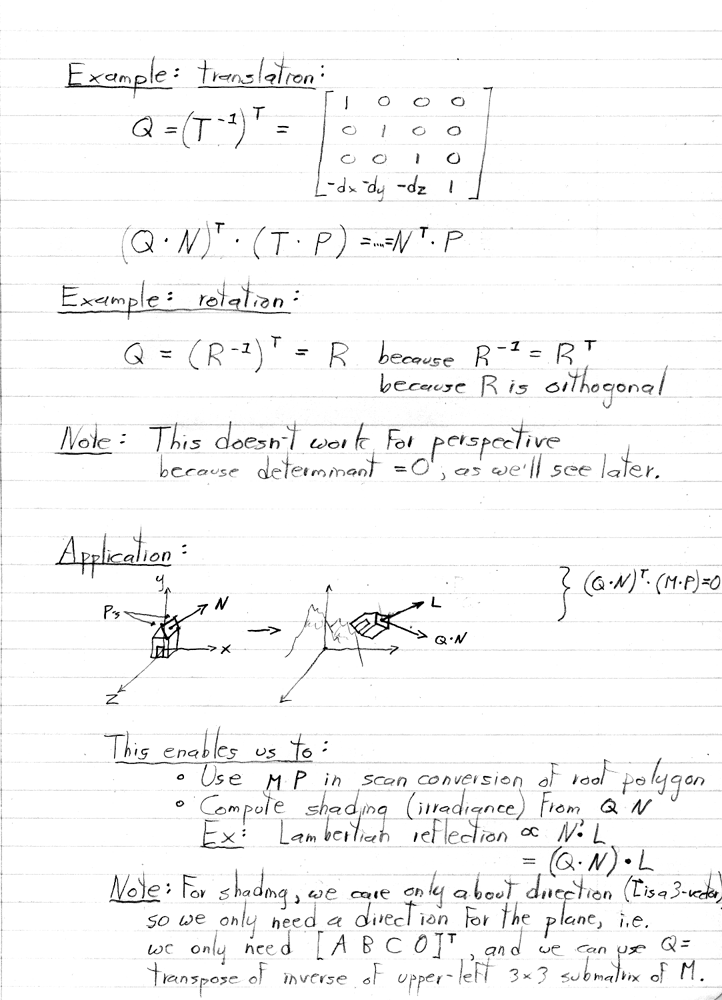 Example: translation:
Q = (T⁻¹)ᵀ = [ 1 0 0 0
0 1 0 0
0 0 1 0
-dx -dy -dz 1 ]
(Q · N)ᵀ · (T · P) = ... = Nᵀ · P
Example: rotation:
Q = (R⁻¹)ᵀ = R because R⁻¹ = Rᵀ
because R is orthogonal
Note: This doesn't work for perspective
because determinant = 0, as we'll see later.
Application:
y
P's N
x
z
L
Q·N
} (Q·N)ᵀ·(M·P)=0
This enables us to:
• Use M P in scan conversion of roof polygon
• Compute shading (irradiance) from Q N
Ex: Lambertian reflection ∝ N · L
= (Q·N) • L
Note: For shading, we care only about direction (L is a 3-vector)
so we only need a direction for the plane, i.e.
we only need [A B C 0]ᵀ, and we can use Q =
transpose of inverse of upper-left 3×3 submatrix of M.